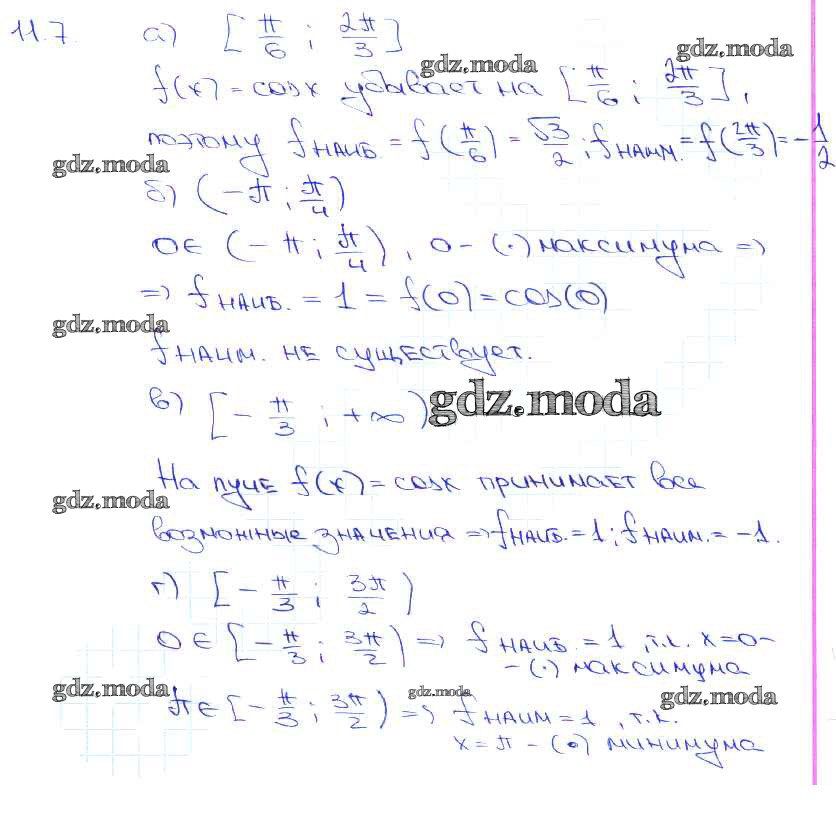 11.7. а) [π/6 ; 2π/3]
gdz.moda gdz.moda
f(x) = cosx убывает на [π/6 ; 2π/3],
поэтому fнаиб. = f(π/6) = √3/2 ; fнаим. = f(2π/3) = -1/2
gdz.moda
б) (-π ; π/4)
0 ∈ (-π ; π/4), 0 - (·) максимума =>
=> fнаиб. = 1 = f(0) = cos(0)
gdz.moda
fнаим. не существует.
в) [-π/3 ; +∞) gdz.moda
На луче f(x) = cosx принимает все
gdz.moda
возможные значения => fнаиб. = 1 ; fнаим. = -1.
г) [-π/3 ; 3π/2)
0 ∈ [-π/3 ; 3π/2) => fнаиб. = 1, т.к. x = 0 -
- (·) максимума
gdz.moda gdz.moda gdz.moda
π ∈ [-π/3 ; 3π/2) => fнаим = 1, т.к.
x = π - (·) минимума